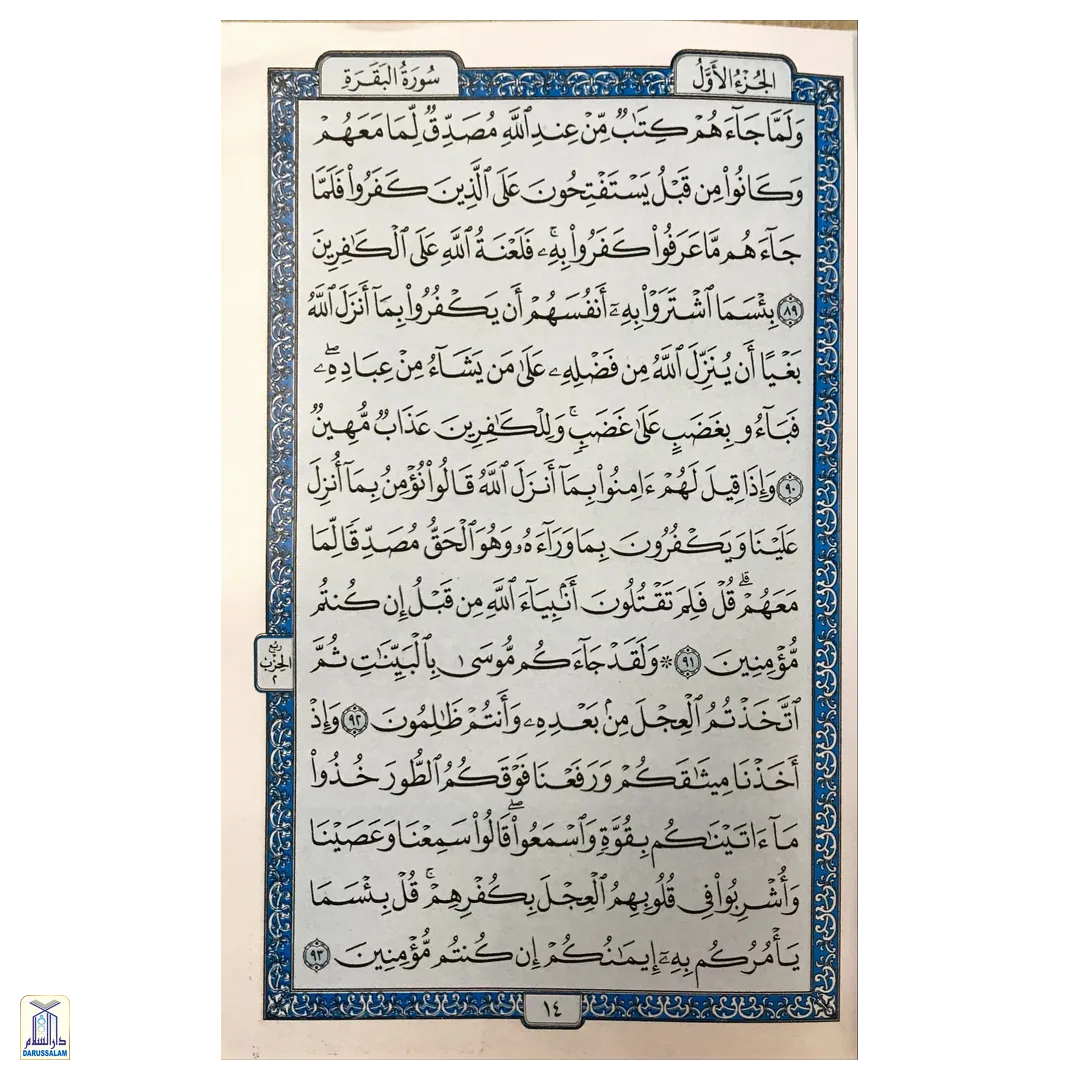 الجُزْءُ الأَوَّلُ
سُورَةُ البَقَرَةِ
وَلَمَّا جَآءَهُمْ كِتَٰبٌ مِّنْ عِندِ ٱللَّهِ مُصَدِّقٌ لِّمَا مَعَهُمْ
وَكَانُوا۟ مِن قَبْلُ يَسْتَفْتِحُونَ عَلَى ٱلَّذِينَ كَفَرُوا۟ فَلَمَّا
جَآءَهُم مَّا عَرَفُوا۟ كَفَرُوا۟ بِهِۦۚ فَلَعْنَةُ ٱللَّهِ عَلَى ٱلْكَٰفِرِينَ
٨٩ بِئْسَمَا ٱشْتَرَوْا۟ بِهِۦٓ أَنفُسَهُمْ أَن يَكْفُرُوا۟ بِمَآ أَنزَلَ ٱللَّهُ
بَغْيًا أَن يُنَزِّلَ ٱللَّهُ مِن فَضْلِهِۦ عَلَىٰ مَن يَشَآءُ مِنْ عِبَادِهِۦۖ
فَبَآءُو بِغَضَبٍ عَلَىٰ غَضَبٍۚ وَلِلْكَٰفِرِينَ عَذَابٌ مُّهِينٌ
٩٠ وَإِذَا قِيلَ لَهُمْ ءَامِنُوا۟ بِمَآ أَنزَلَ ٱللَّهُ قَالُوا۟ نُؤْمِنُ بِمَآ أُنزِلَ
عَلَيْنَا وَيَكْفُرُونَ بِمَا وَرَآءَهُۥ وَهُوَ ٱلْحَقُّ مُصَدِّقًا لِّمَا
مَعَهُمْۗ قُلْ فَلِمَ تَقْتُلُونَ أَنۢبِيَآءَ ٱللَّهِ مِن قَبْلُ إِن كُنتُم
مُّؤْمِنِينَ ٩١ ۞ وَلَقَدْ جَآءَكُم مُّوسَىٰ بِٱلْبَيِّنَٰتِ ثُمَّ
ٱتَّخَذْتُمُ ٱلْعِجْلَ مِنۢ بَعْدِهِۦ وَأَنتُمْ ظَٰلِمُونَ ٩٢ وَإِذْ
أَخَذْنَا مِيثَٰقَكُمْ وَرَفَعْنَا فَوْقَكُمُ ٱلطُّورَ خُذُوا۟
مَآ ءَاتَيْنَٰكُم بِقُوَّةٍ وَٱسْمَعُوا۟ۖ قَالُوا۟ سَمِعْنَا وَعَصَيْنَا
وَأُشْرِبُوا۟ فِى قُلُوبِهِمُ ٱلْعِجْلَ بِكُفْرِهِمْۚ قُلْ بِئْسَمَا
يَأْمُرُكُم بِهِۦٓ إِيمَٰنُكُمْ إِن كُنتُم مُّؤْمِنِينَ ٩٣
ربع
الحزب
٢
١٤
دارالسلام
DARUSSALAM